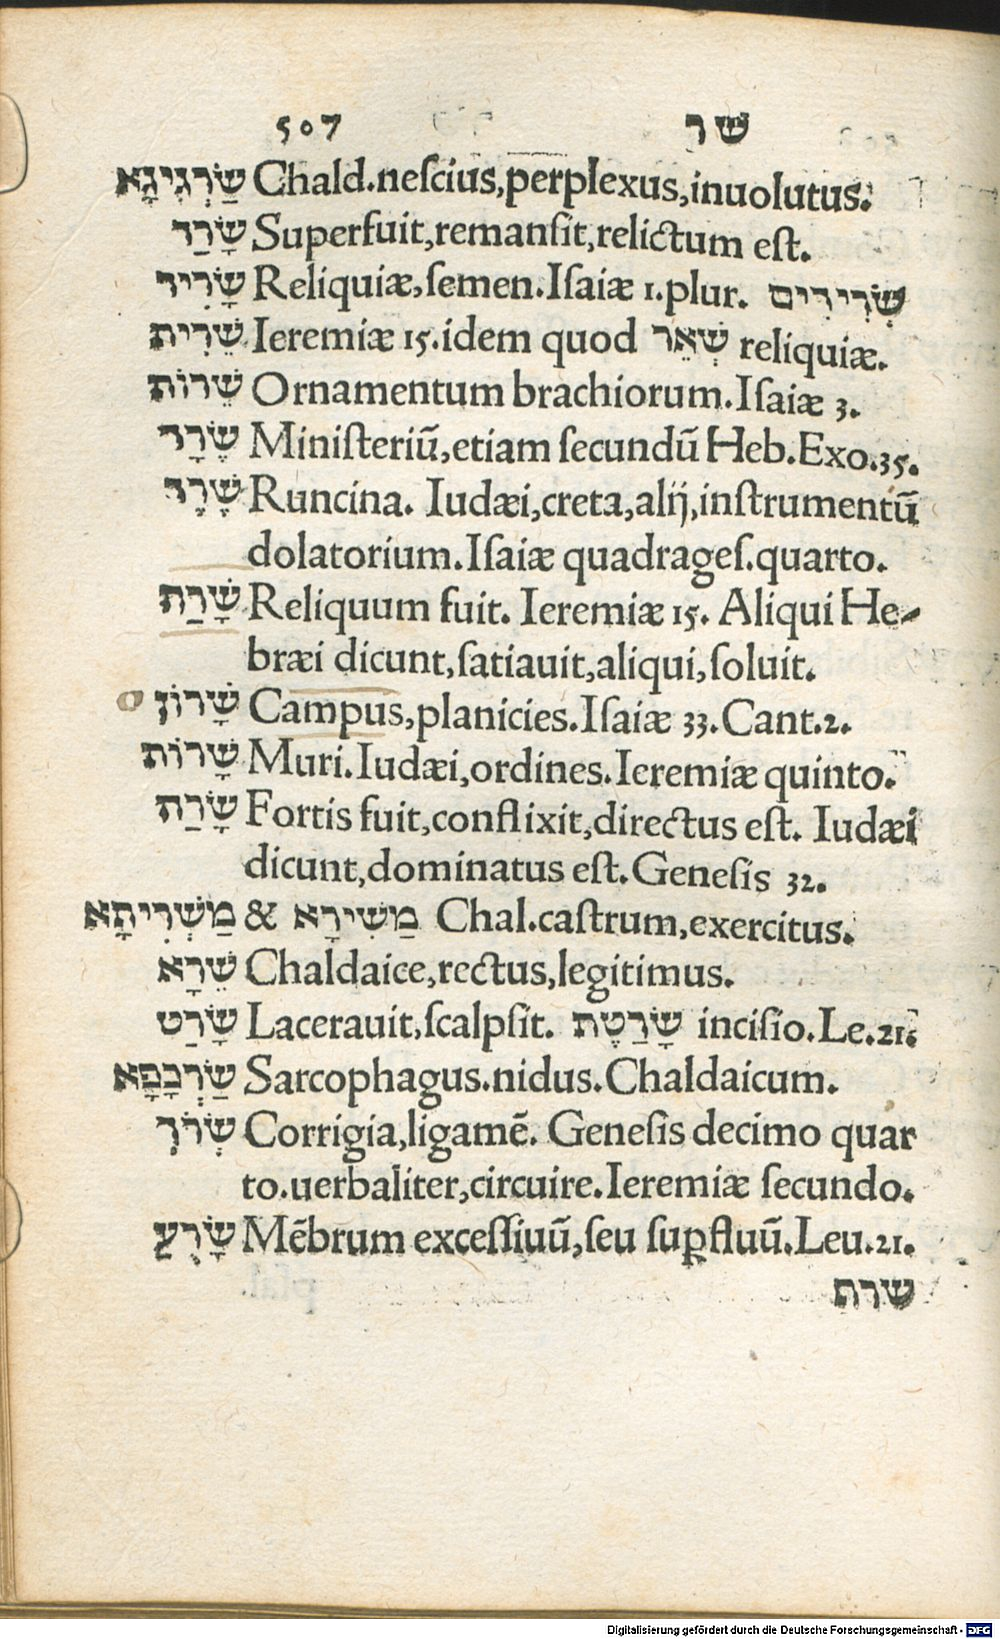 507 שר
שַׂרְגִיגָא Chald.neſcius,perplexus,inuolutus.
שָׂרַד Superfuit,remanſit,relictum eſt.
שָׂרִיד Reliquiæ,ſemen.Iſaiæ 1.plur. שְׂרִידִים
שֵׁרִית Ieremiæ 15.idem quod שְׁאֵר reliquiæ.
שֵׁרוֹת Ornamentum brachiorum.Iſaiæ 3.
שְׂרָד Miniſteriū,etiam ſecundū Heb.Exo.35.
שָׂרָד Runcina. Iudæi,creta,alij,inſtrumentū
dolatorium.Iſaiæ quadrageſ.quarto.
שָׁרַת Reliquum fuit. Ieremiæ 15. Aliqui He-
bræi dicunt,ſatiauit,aliqui,ſoluit.
שָׁרוֹן Campus,planicies.Iſaiæ 33.Cant.2.
שָׁרוֹת Muri.Iudæi,ordines.Ieremiæ quinto.
שָׂרַת Fortis fuit,conflixit,directus eſt. Iudæi
dicunt,dominatus eſt.Geneſis 32.
מַשְׁרִיתָא & מַשִׁירָא Chal.caſtrum,exercitus.
שֵׁרָא Chaldaice,rectus,legitimus.
שָׂרַט Lacerauit,ſcalpſit. שָׂרַטֶת inciſio.Le.21.
שַׂרְכָפָא Sarcophagus.nidus.Chaldaicum.
שְׂרֹךְ Corrigia,ligamē. Geneſis decimo quar
to.uerbaliter,circuire.Ieremiæ ſecundo.
שָׂרֻעַ Mēbrum exceſſiuū,ſeu ſuꝑfluū.Leu.21.
שרת
Digitalisierung gefördert durch die Deutsche Forschungsgemeinschaft - DFG